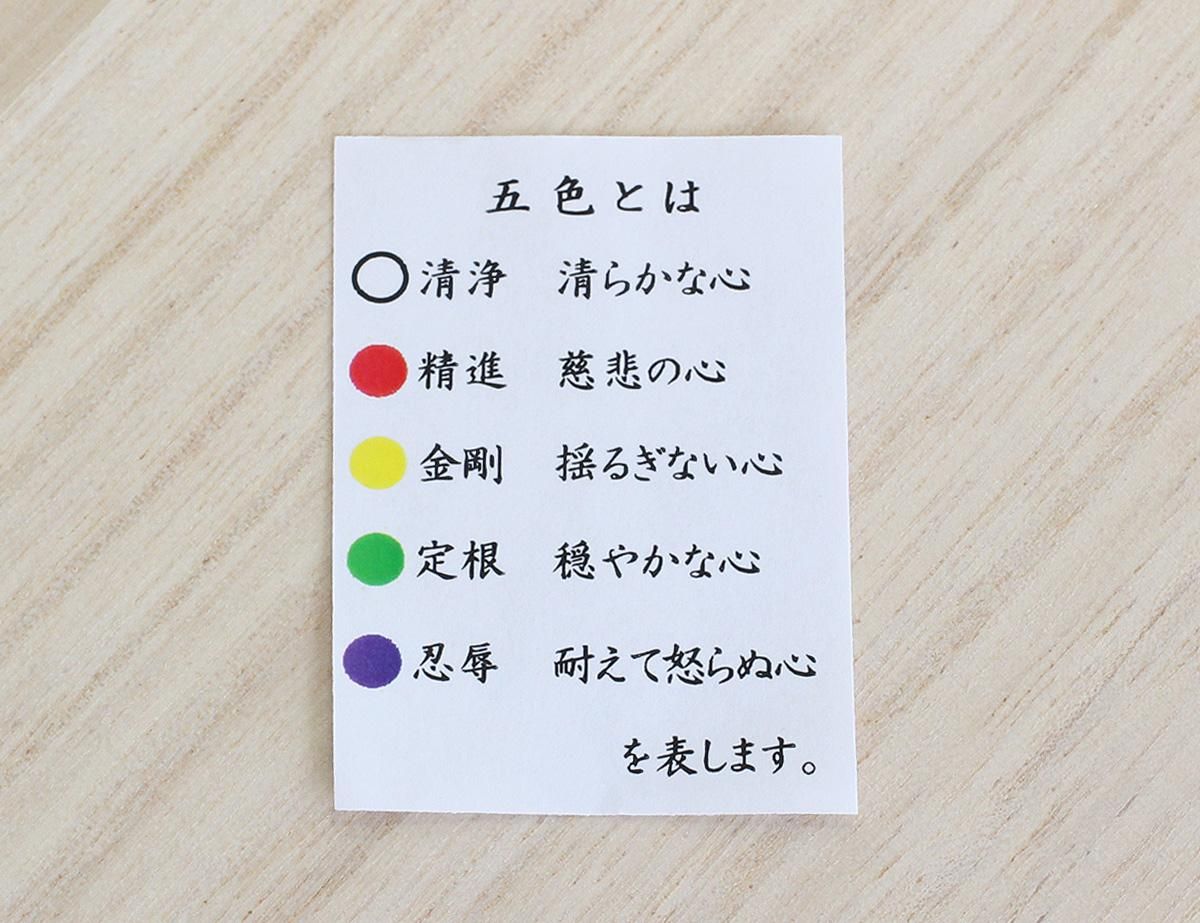 五色とは
清浄 清らかな心
精進 慈悲の心
金剛 揺るぎない心
定根 穏やかな心
忍辱 耐えて怒らぬ心
を表します。